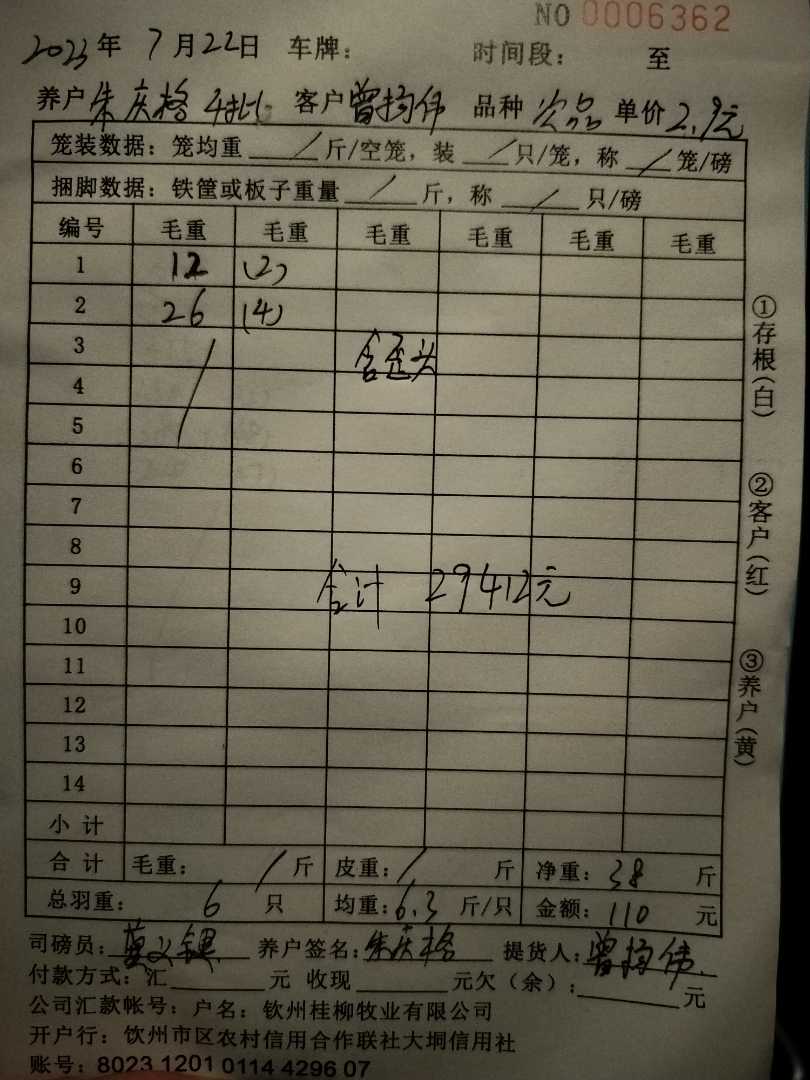 NO 0006362
2023年 7月22日 车牌: 时间段: 至
养户 朱庆格 客户 曾扬伟 品种 次品 单价 2.9元
笼装数据: 笼均重 / 斤/空笼, 装 / 只/笼, 称 / 笼/磅
捆脚数据: 铁筐或板子重量 / 斤, 称 / 只/磅
编号 毛重 毛重 毛重 毛重 毛重 毛重
1 12 (2)
2 26 (4)
3 含歪头
4
5
6
7
8
9 合计 29412元
10
11
12
13
14
小计
合计 毛重: / 斤 皮重: / 斤 净重: 38 斤
总羽重: 6 只 均重: 6.3 斤/只 金额: 110 元
司磅员: 养户签名: 朱庆格 提货人: 曾扬伟
付款方式: 汇 元 收现 元欠(余): 元
公司汇款帐号: 户名: 钦州桂柳牧业有限公司
开户行: 钦州市区农村信用合作联社大垌信用社
账号: 8023 1201 0114 4296 07
①存根(白)
②客户(红)
③养户(黄)